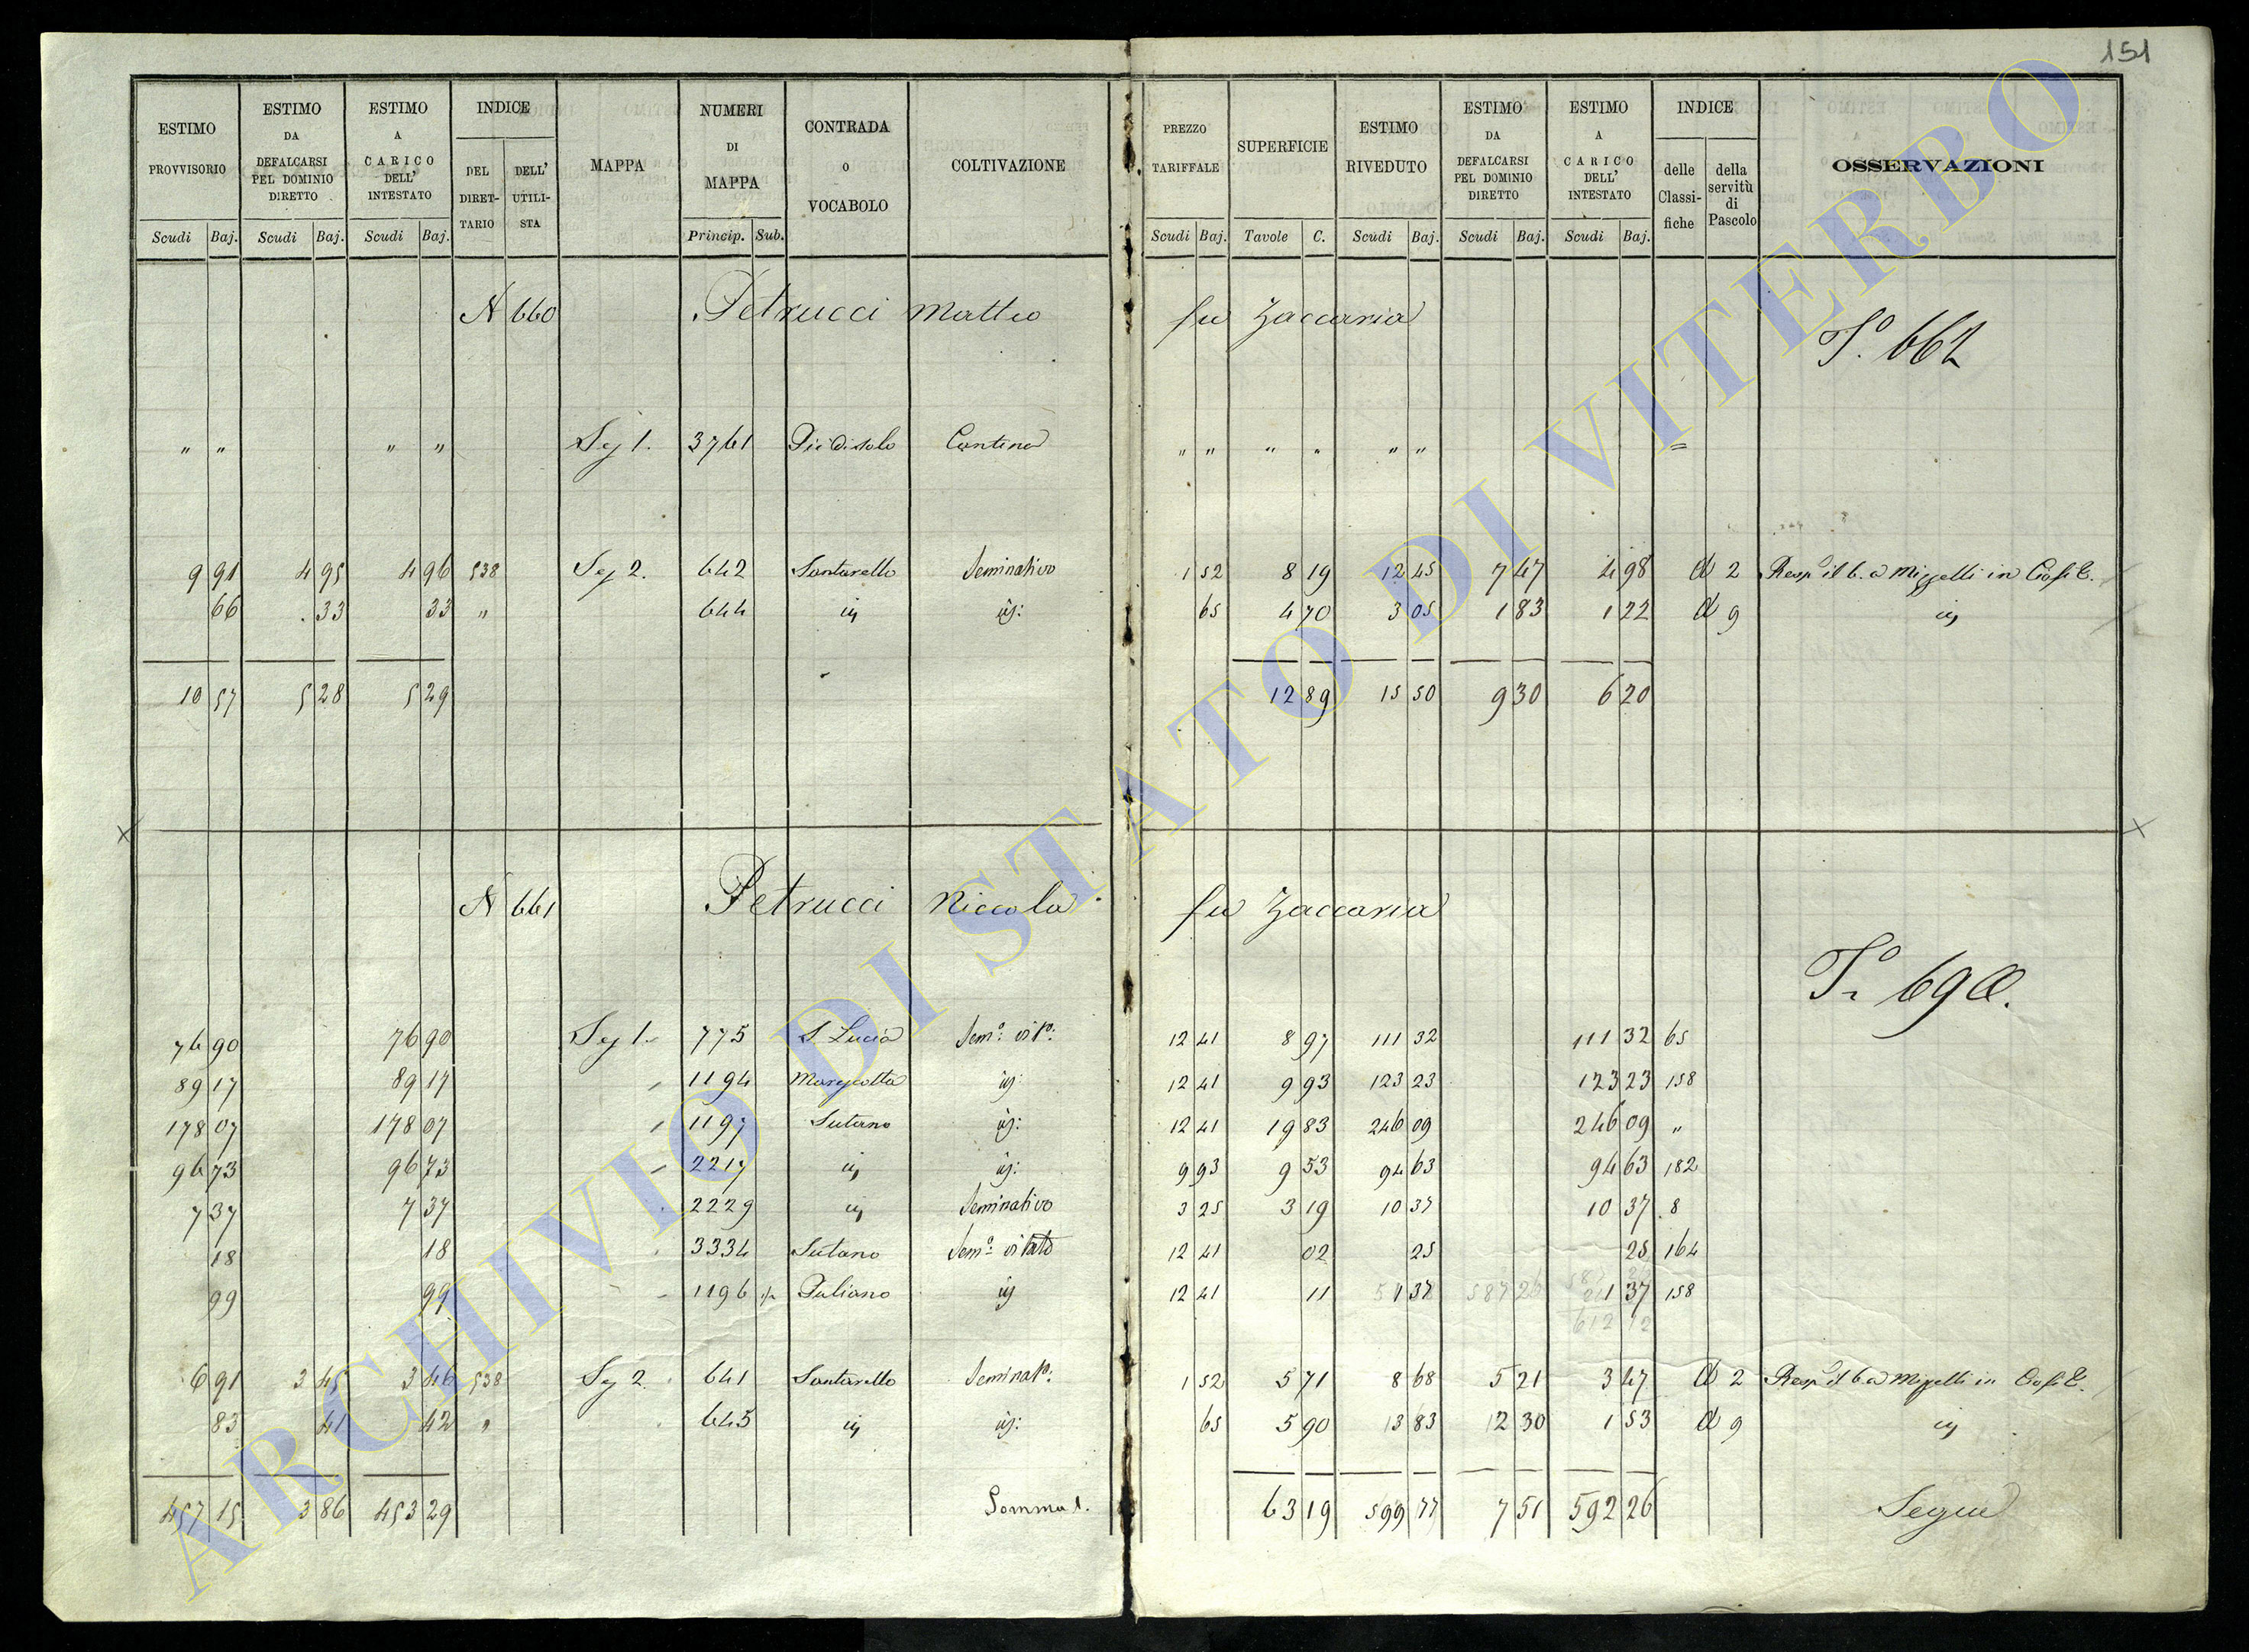 151
ESTIMO PROVVISORIO | ESTIMO DA DEFALCARSI PEL DOMINIO DIRETTO | ESTIMO A CARICO DELL' INTESTATO | INDICE DEL DIRETTARIO | DELL' UTILISTA | MAPPA | NUMERI DI MAPPA | CONTRADA O VOCABOLO | COLTIVAZIONE | PREZZO TARIFFALE | SUPERFICIE | ESTIMO RIVEDUTO | ESTIMO DA DEFALCARSI PEL DOMINIO DIRETTO | ESTIMO A CARICO DELL' INTESTATO | INDICE delle Classifiche | della servitù di Pascolo | OSSERVAZIONI
Scudi Baj. Scudi Baj. Scudi Baj. Princip. Sub. Scudi Baj. Tavole C. Scudi Baj. Scudi Baj. Scudi Baj.
N 660 Petrucci Matteo fu Zaccaria
T.o 662
" " " " Sez 1. 3761 Piè di solo Cantina " " " " " " =
9 91 4 95 4 96 538 Sez 2. 642 Santarello Seminativo 1 52 8 19 12 45 7 47 4 98 d 2
66 . 33 33 " 644 65 4 70 3 05 1 83 1 22 d 9
10 57 5 28 5 29 12 89 15 50 9 30 6 20
N 661 Petrucci Niccola fu Zaccaria
76 90 76 90 Sez 1. 775 S Lucia Sem.o vit.o: 12 41 8 97 111 32 111 32 65
89 17 89 17 1194 12 41 9 93 123 23 123 23 158
178 07 178 07 1197 Sutano 12 41 19 83 246 09 246 09 "
96 73 96 73 2217 9 93 9 53 94 63 94 63 182
7 37 7 37 2229 Seminativo 3 25 3 19 10 37 10 37 8
18 18 3334 Sutano Sem.o vitato 12 41 02 25 25 164
99 99 1196 Puliano 12 41 11 37 1 37 158
612 12
6 91 3 45 3 46 538 Sez 2 641 Santarello Seminat.o: 1 52 5 71 8 68 5 21 3 47 d 2
83 41 42 " 645 65 5 90 3 83 2 30 1 53 d 9
457 15 3 86 453 29 Somma 1. 63 19 599 77 7 51 592 26 Segue
ARCHIVIO DI STATO DI VITERBO